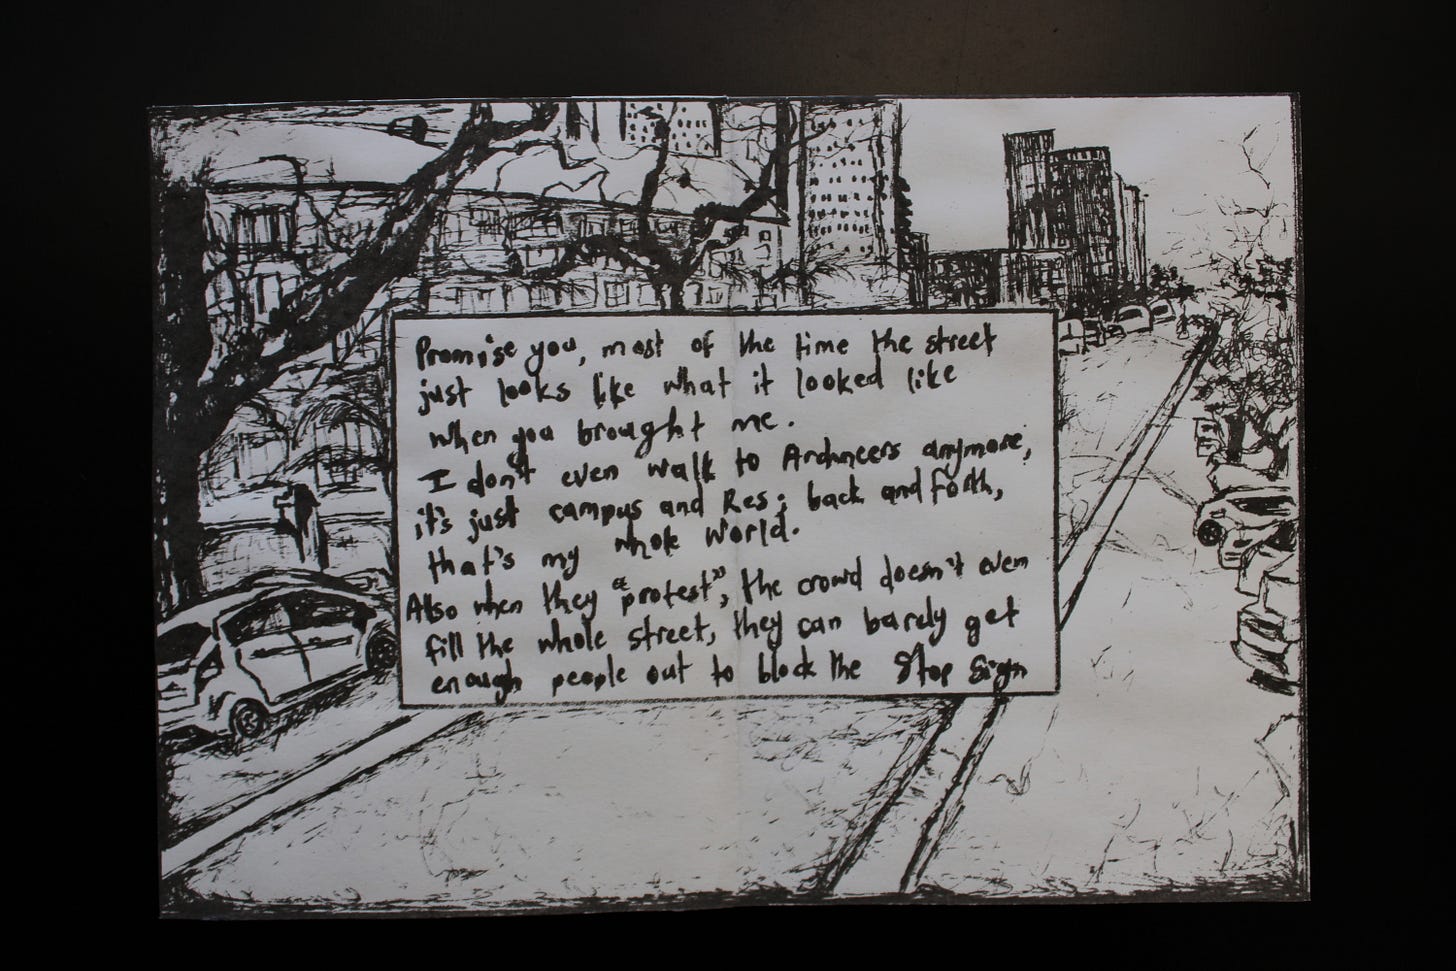 Promise you, most of the time the street
just looks like what it looked like
when you brought me.
I don't even walk to Archneers anymore,
it's just campus and Res; back and forth,
that's my whole world.
Also when they "protest", the crowd doesn't even
fill the whole street, they can barely get
enough people out to block the Stop Sign